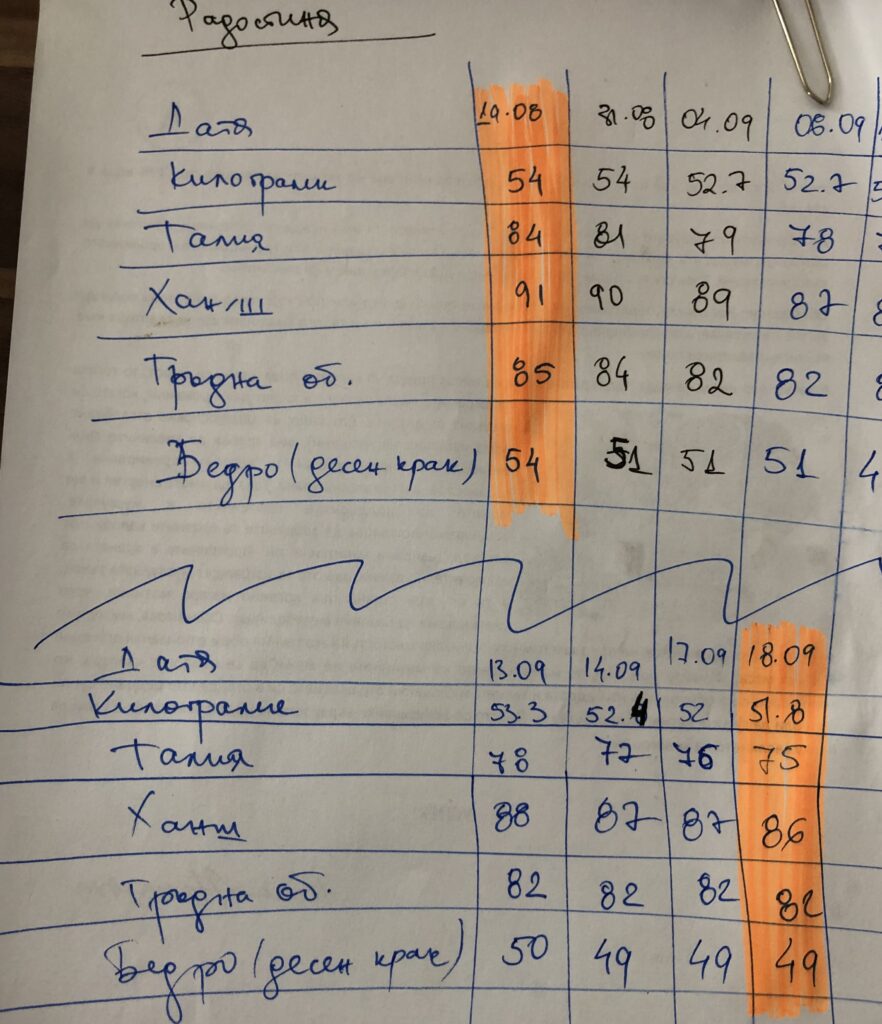 Радостина
Дата 19.08 31.08 04.09 08.09
Килограми 54 54 52.7 52.7
Талия 84 81 79 78
Ханш 91 90 89 87
Гръдна об. 85 84 82 82
Бедро (десен крак) 54 51 51 51 4
Дата 13.09 14.09 17.09 18.09
Килограми 53.3 52.4 52 51.8
Талия 78 77 76 75
Ханш 88 87 87 86
Гръдна об. 82 82 82 82
Бедро (десен крак) 50 49 49 49